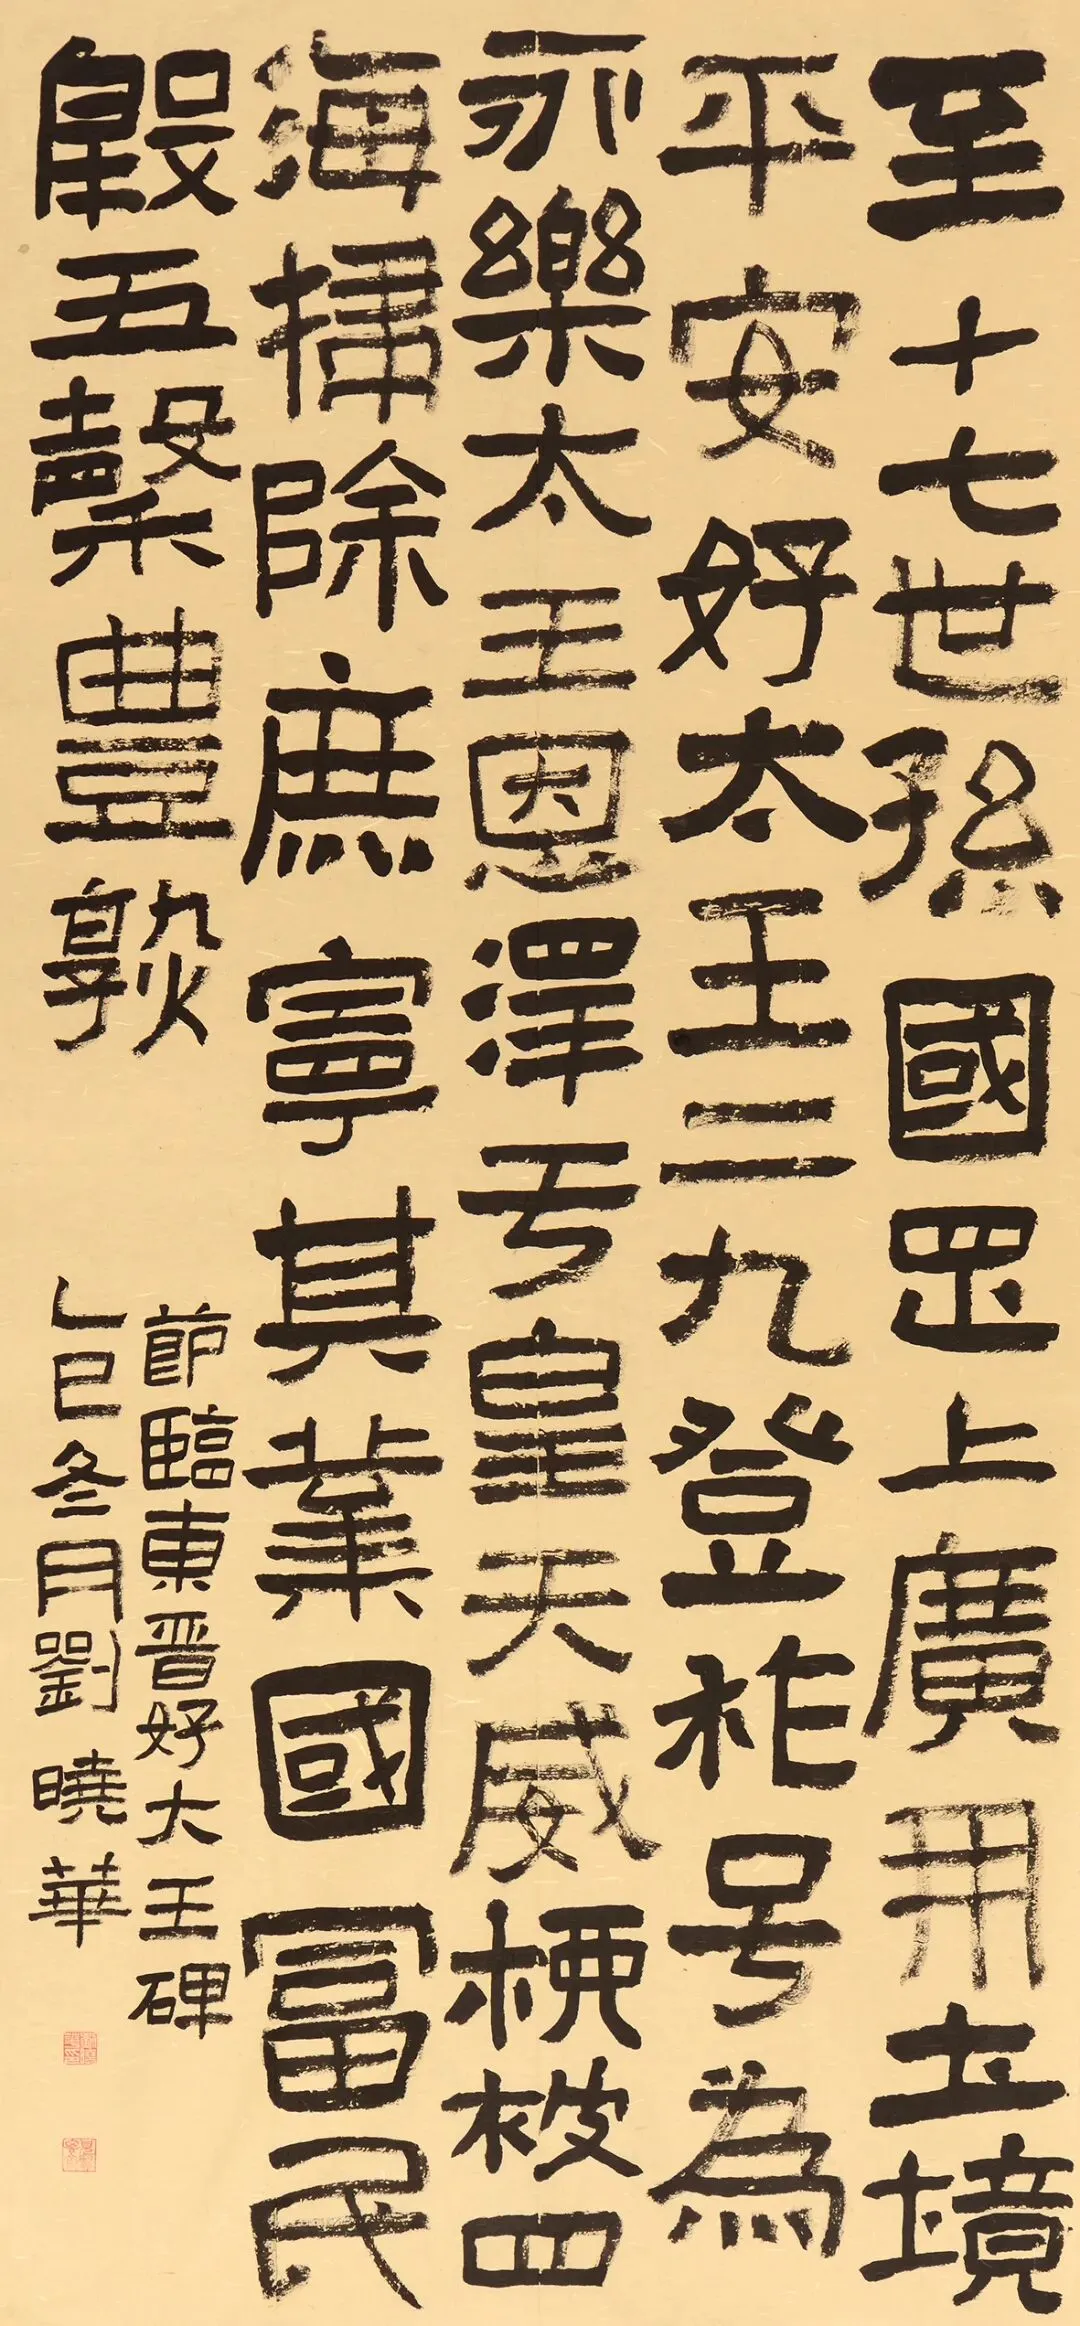 至十七世孫國罡上廣開土境
平安好太王二九登祚号為
永樂太王恩澤于皇天威柳被四
海掃除庶寧其業國富民
殷五穀豐熟
節臨東晋好大王碑
乙巳冬月劉曉華